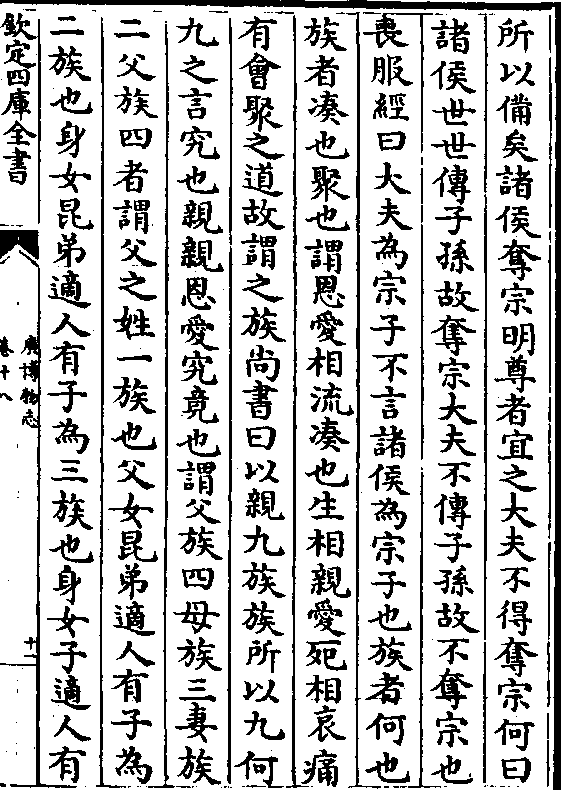 所以備矣諸侯奪宗明尊者宜之大夫不得奪宗何曰
諸侯世世傳子孫故奪宗大夫不傳子孫故不奪宗也
喪服經曰大夫為宗子不言諸侯為宗子也族者何也
族者凑也聚也謂恩愛相流凑也生相親愛死相哀痛
有會聚之道故謂之族尚書曰以親九族族所以九何
九之言究也親親恩愛究竟也謂父族四母族三妻族
二父族四者謂父之姓一族也父女昆弟適人有子為
二族也身女昆弟適人有子為三族也身女子適人有
欽定四庫全書
廣博物志
卷十八
十一